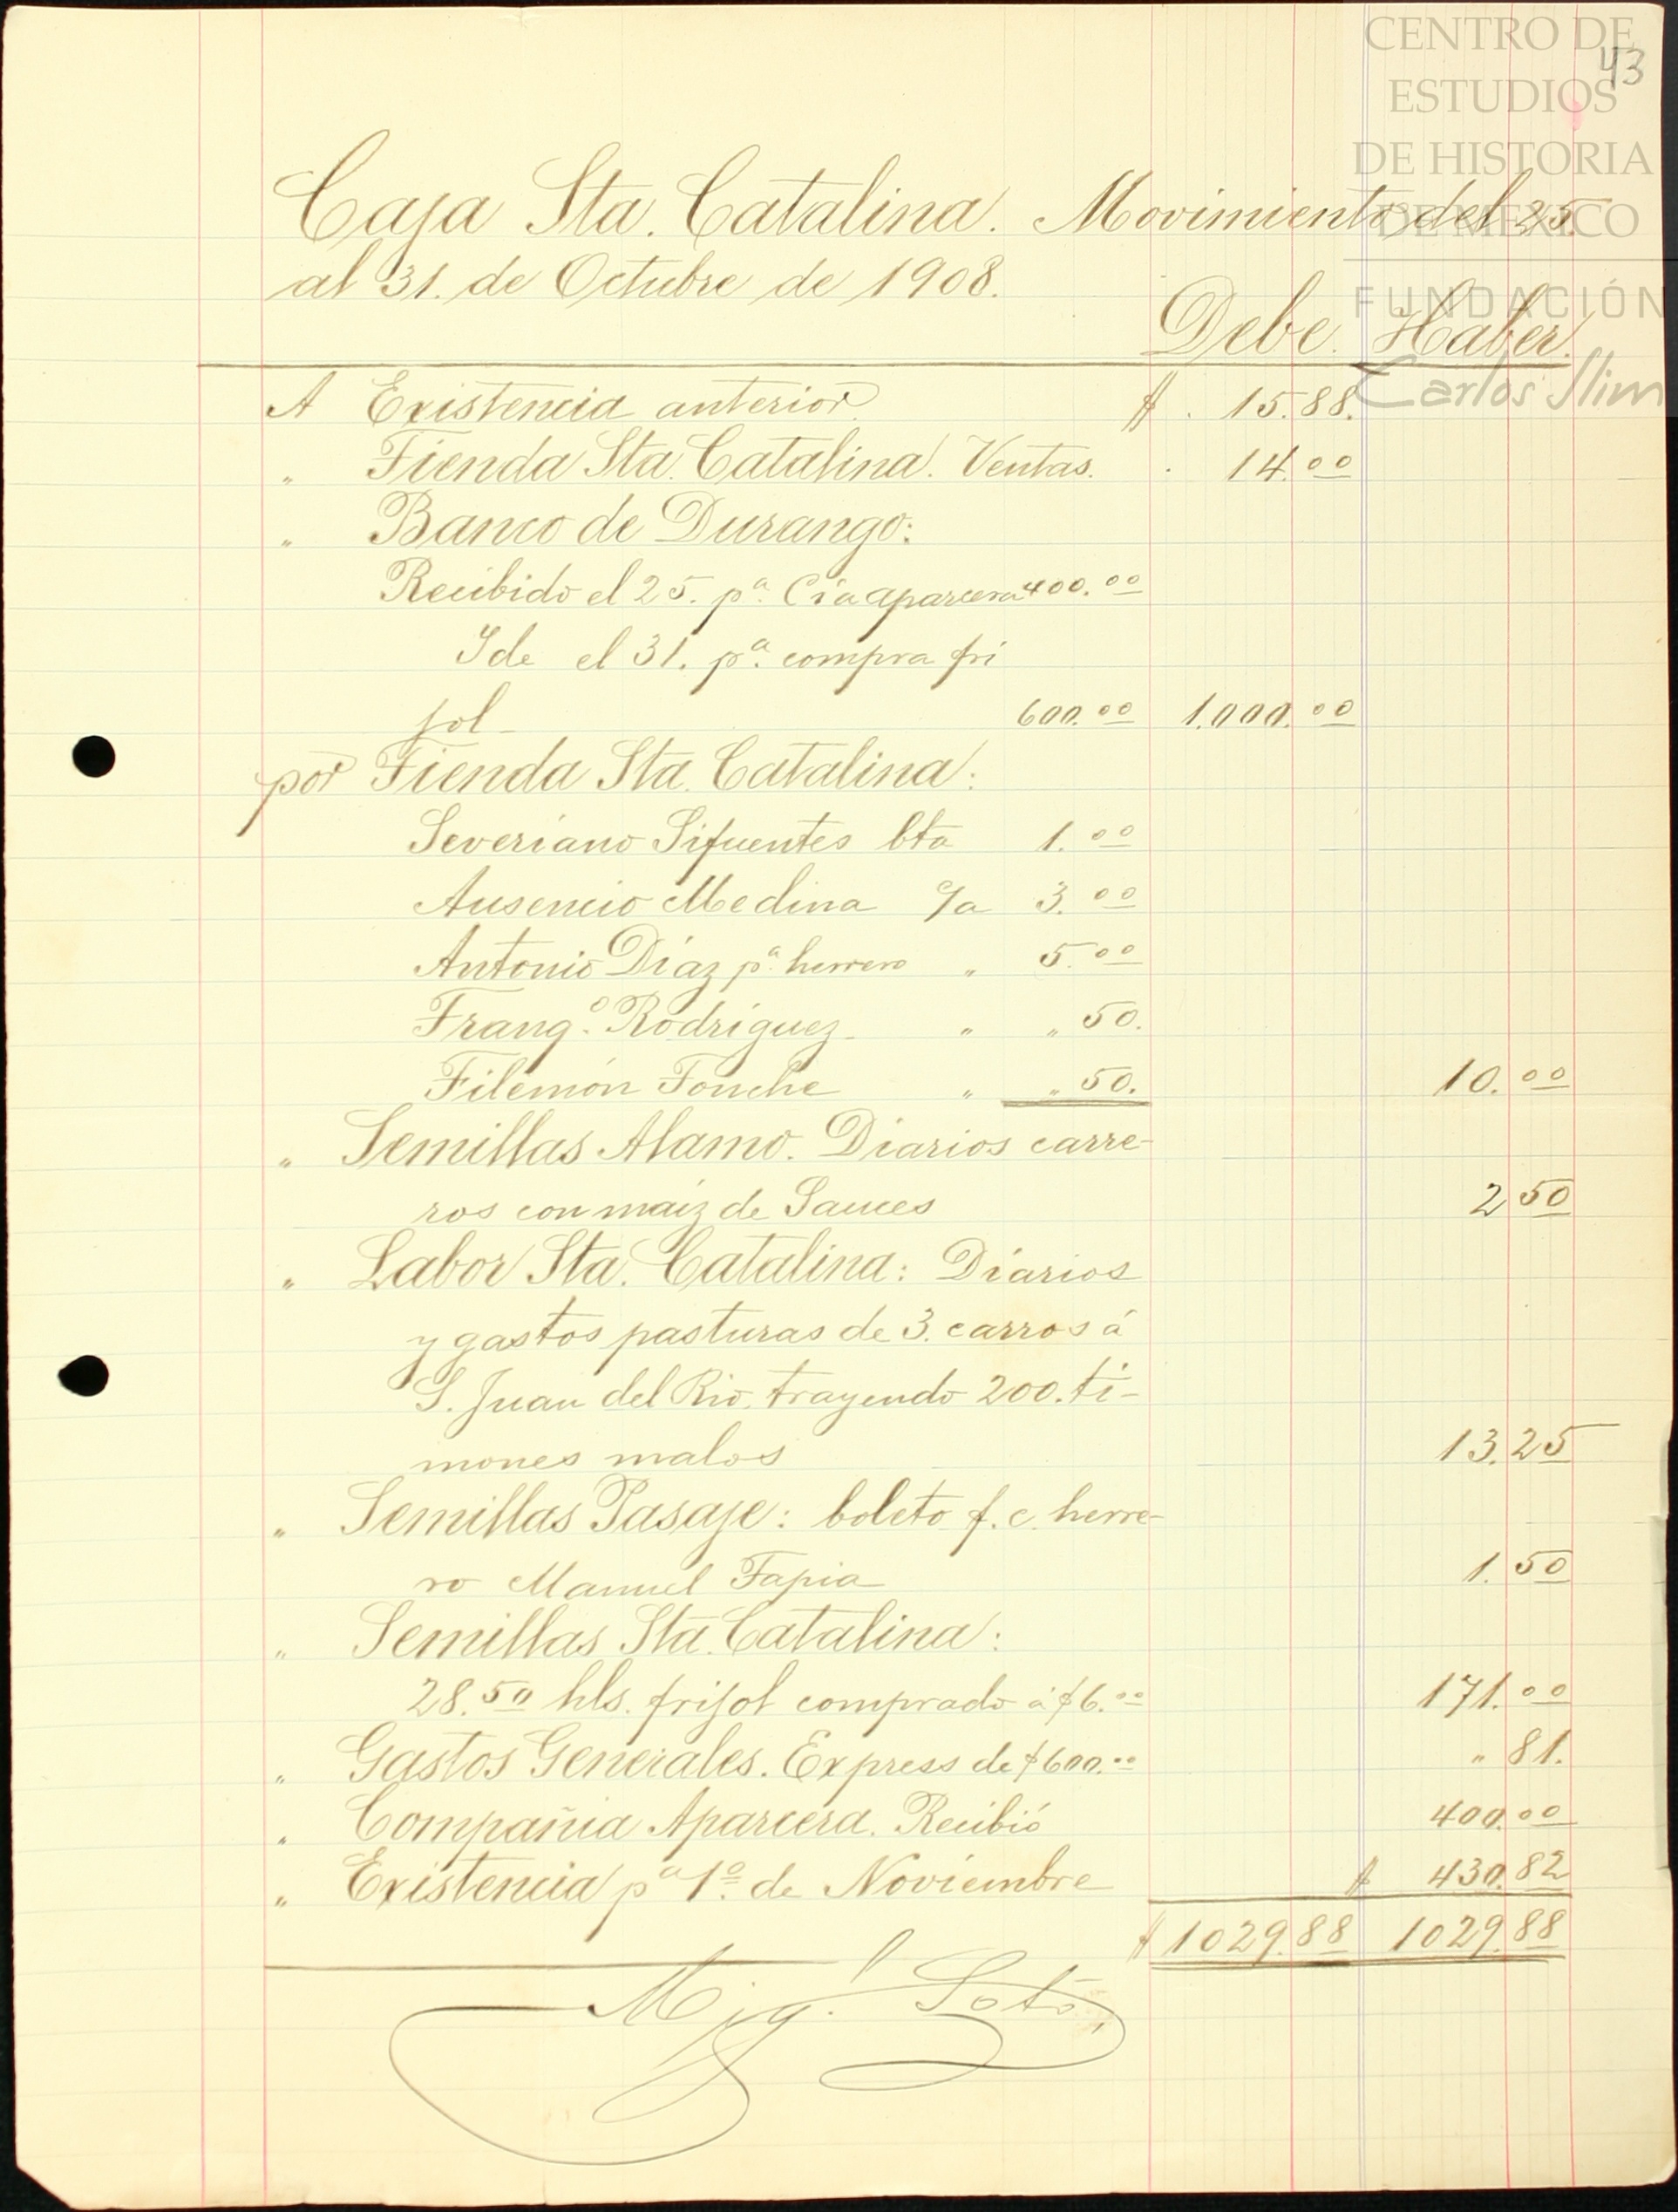 CENTRO DE
ESTUDIOS
DE HISTORIA
DE MEXICO
FUNDACIÓN
Carlos Slim
43
Caja Sta. Catalina. Movimiento del 25.
al 31. de Octubre de 1908.
Debe. Haber.
A Existencia anterior. $ . 15.88.
" Tienda Sta. Catalina. Ventas. . 14.00
" Banco de Durango:
Recibido el 25. pª. Cía aparcera 400.00
Ide el 31. pª. compra fri
jol 600.00 1.000.00
por Tienda Sta. Catalina:
Severiano Sifuentes bta 1.00
Ausencio Medina c/a 3.00
Antonio Díaz pª. herrero " 5.00
Franqº. Rodríguez " " 50.
Filemón Fouche " " 50. 10.00
" Semillas Alamo. Diarios carre-
ros con maíz de Sauces 2 50
" Labor Sta. Catalina: Diarios
y gastos pasturas de 3. carros á
S. Juan del Rio, trayendo 200. ti-
mones malos 13.25
" Semillas Pasaje: boleto f. c. herre-
ro Manuel Tapia 1.50
" Semillas Sta. Catalina:
28.50 hls. frijol comprado á $6.00 171.00
" Gastos Generales. Express de $600.00 " 81.
" Compañia Aparcera. Recibió 400.00
" Existencia pª 1º. de Noviembre $ 430.82
$ 1029.88 1029.88
Migl. Soto